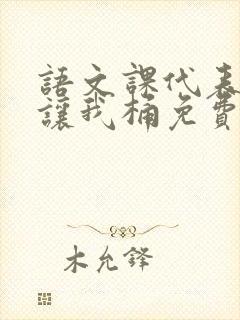 語文課代表
讓我桶免費
木允鋒